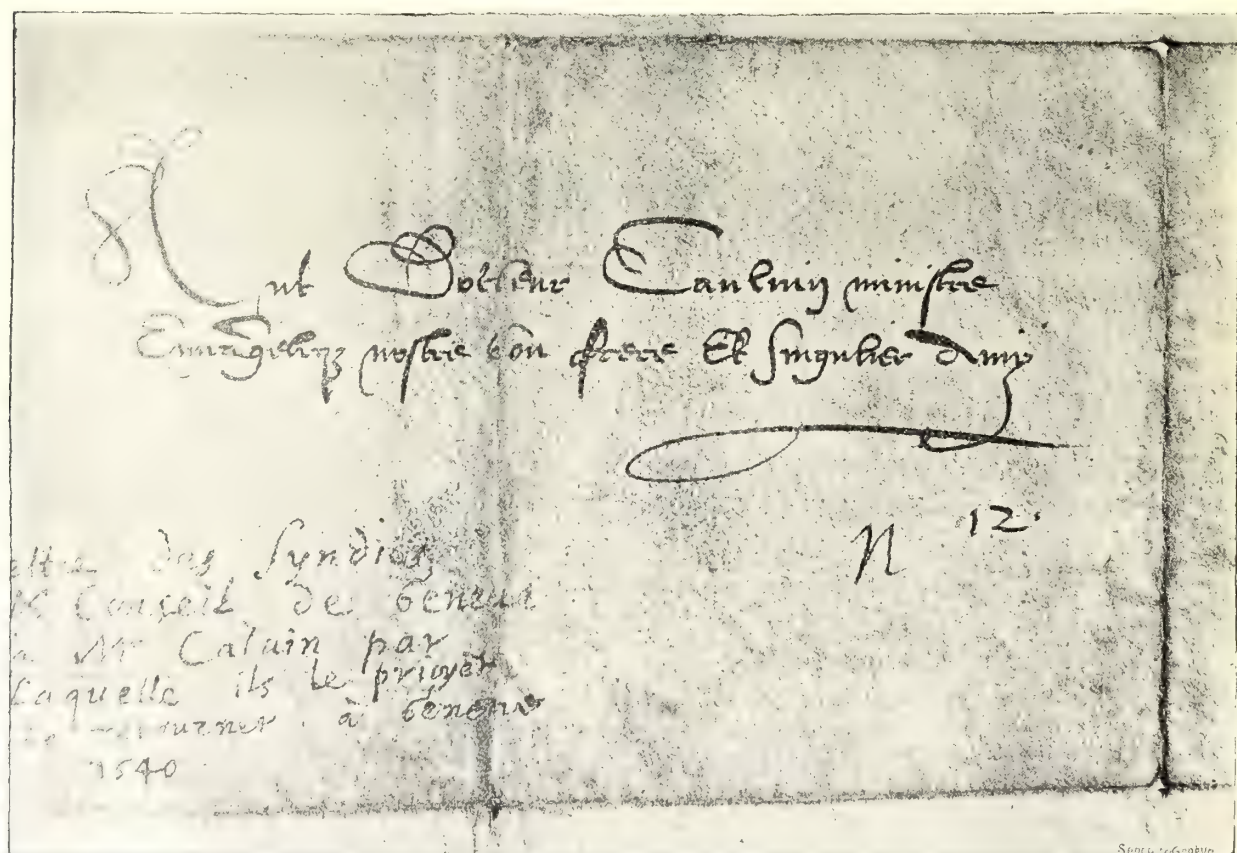 Au Docteur Caulvin ministre
Evangelicq nostre bon frere Et singulier Amy
N 12.
des Syndics
& Conseil de Geneve
à Mr Calvin par
Laquelle ils le prioyēt
à Geneve
1540